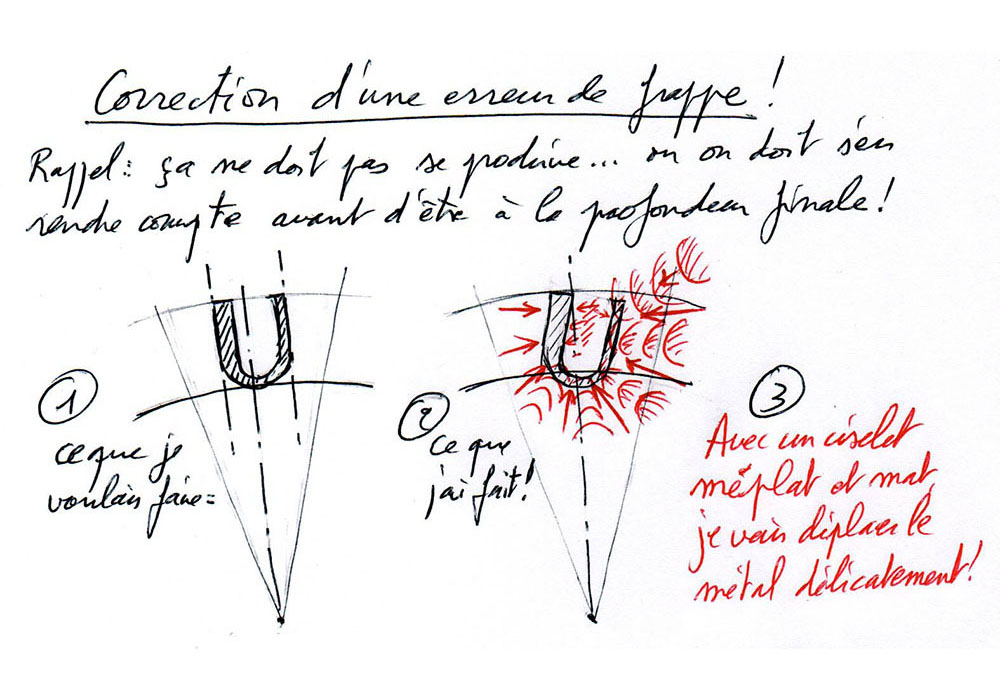 Correction d'une erreur de frappe !
Rappel : ça ne doit pas se produire... ou on doit s'en
rendre compte avant d'être à la profondeur finale !
1
ce que je
voulais faire =
2
ce que
j'ai fait !
3
Avec un ciselet
méplat et mat,
je vais déplacer le
métal délicatement !